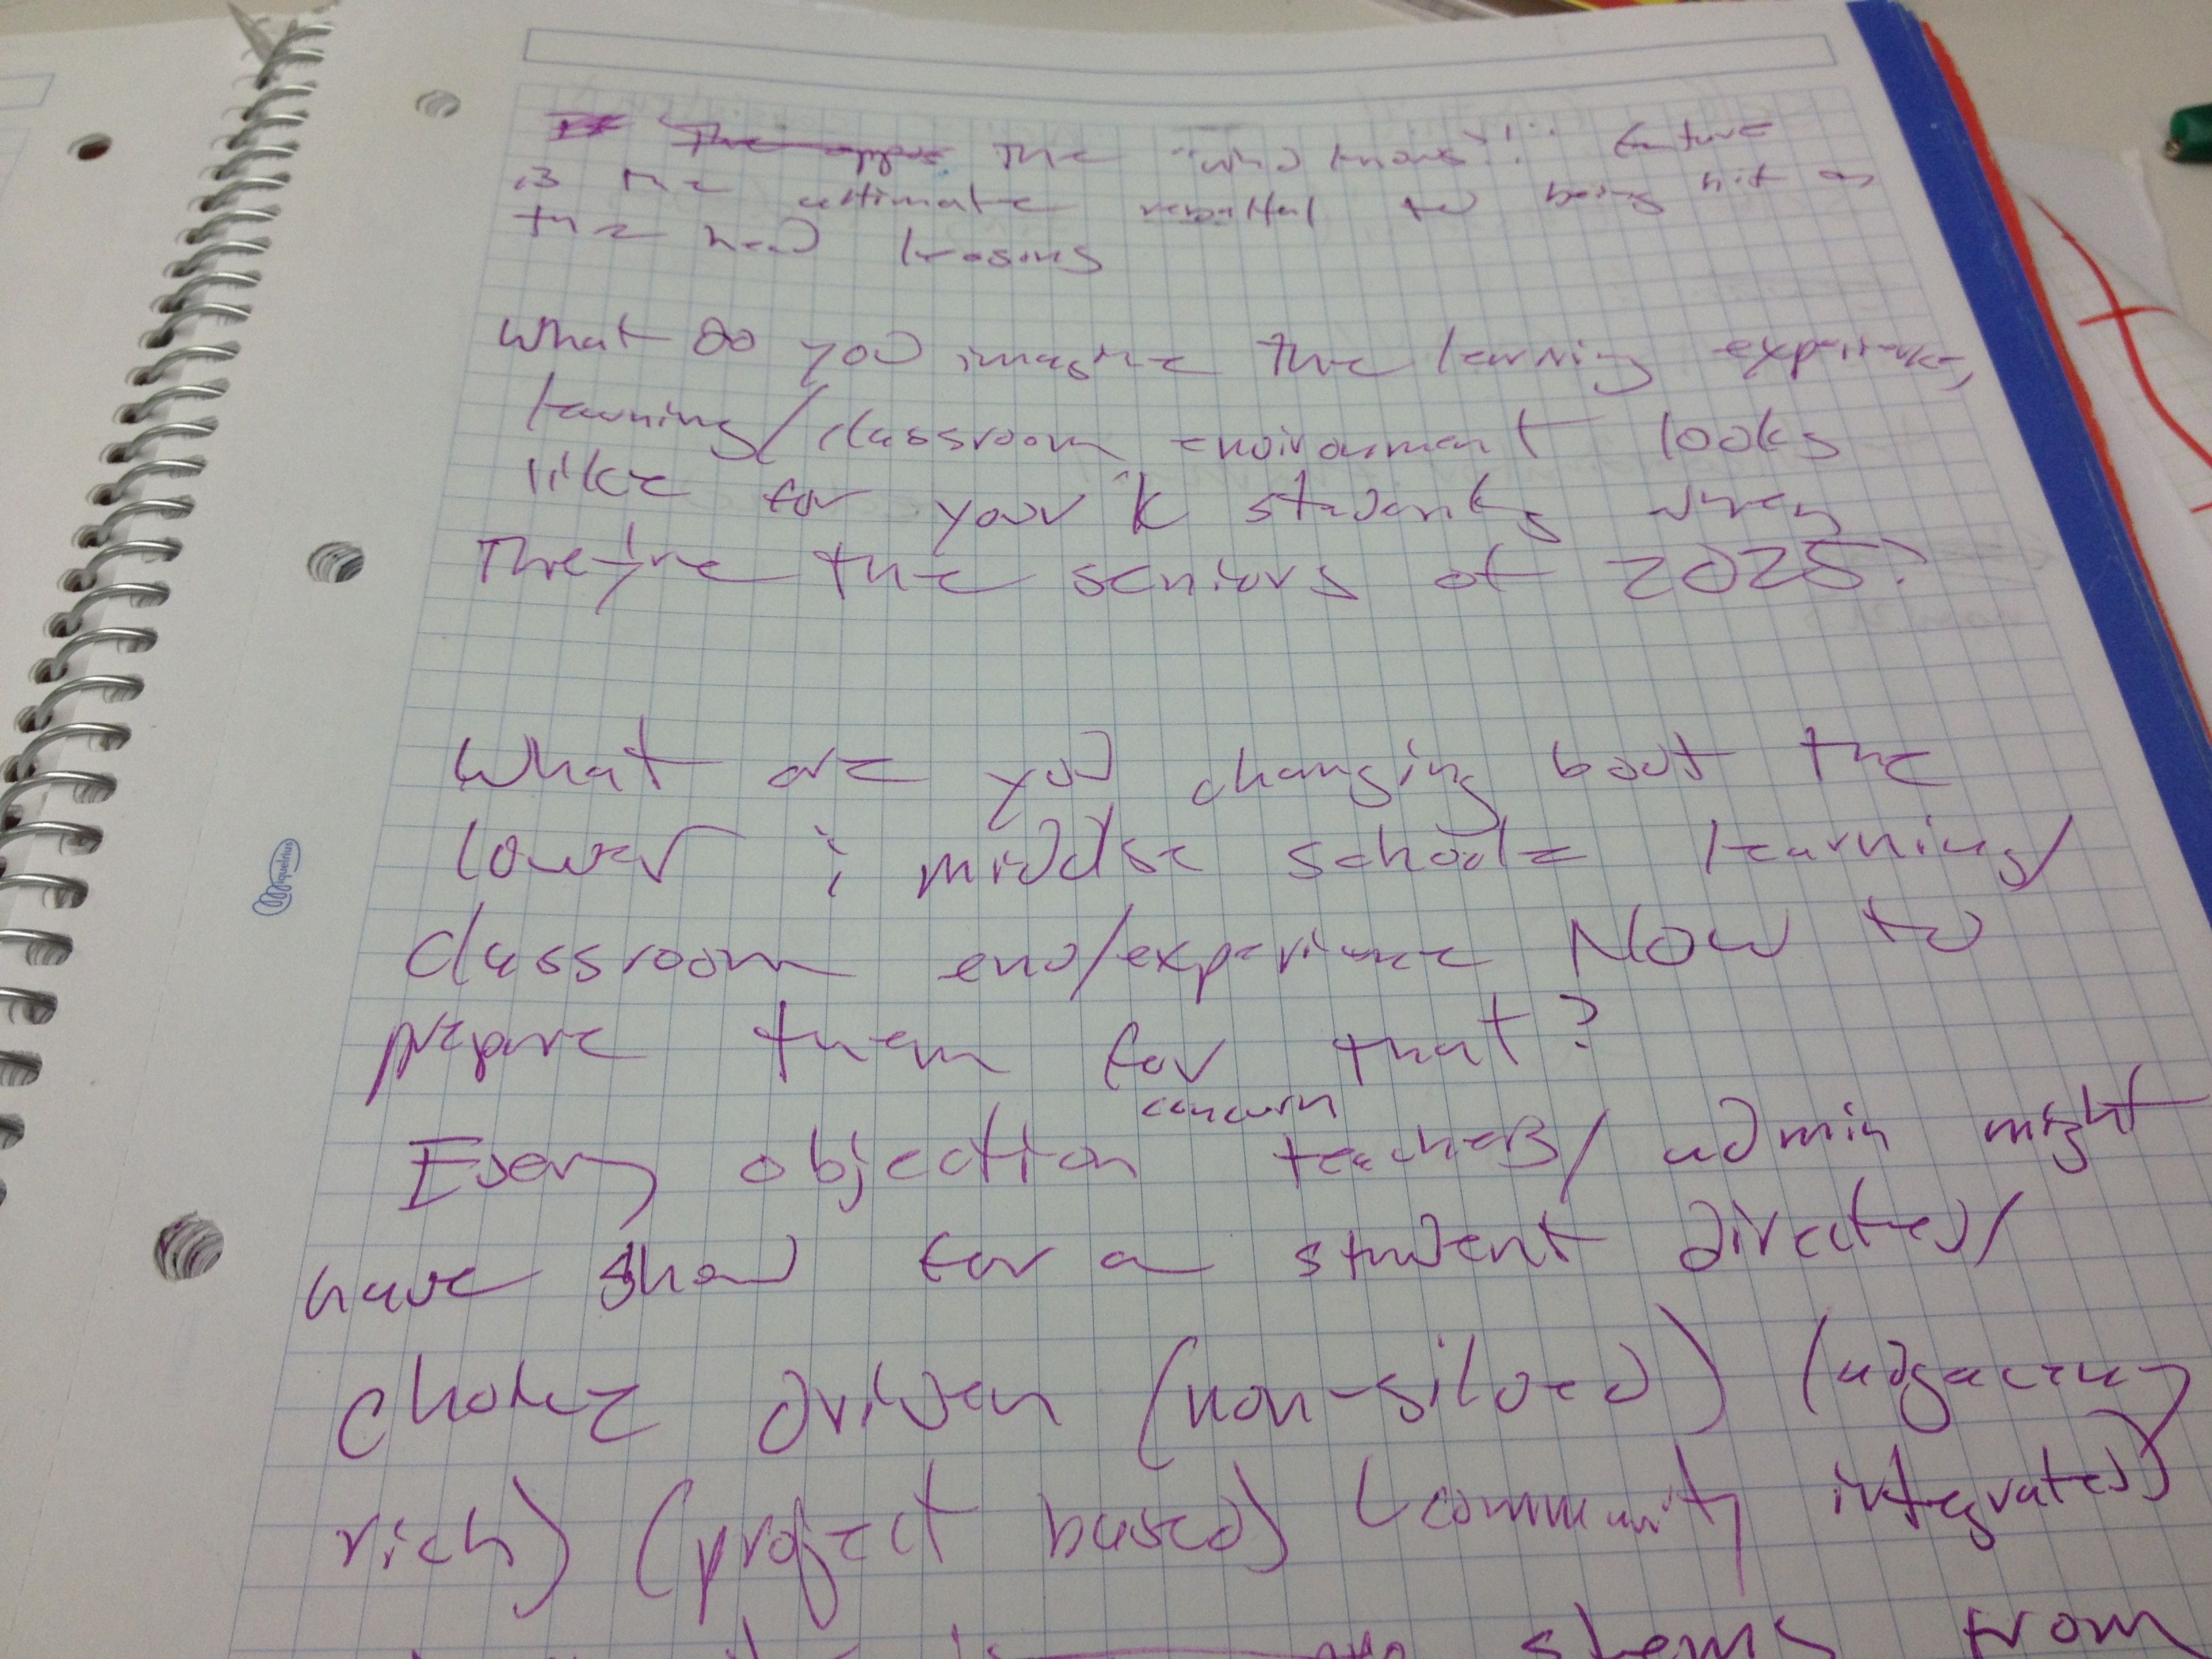 The "who knows"! future
is the ultimate rebuttal to being hit on
the head lessons
What do you imagine the learning experience,
learning/classroom environment looks
like for your K students when
They're the seniors of 2025?
What are you changing bout the
lower & middle schoole learning/
classroom env/experience Now to
prepare them for that?
concern
Every objection teachers/admin might
have for a student directed/
choice driven (non-siloed) (adgacency
rich) (project based) (community integrated)
stems from
Miquelrius